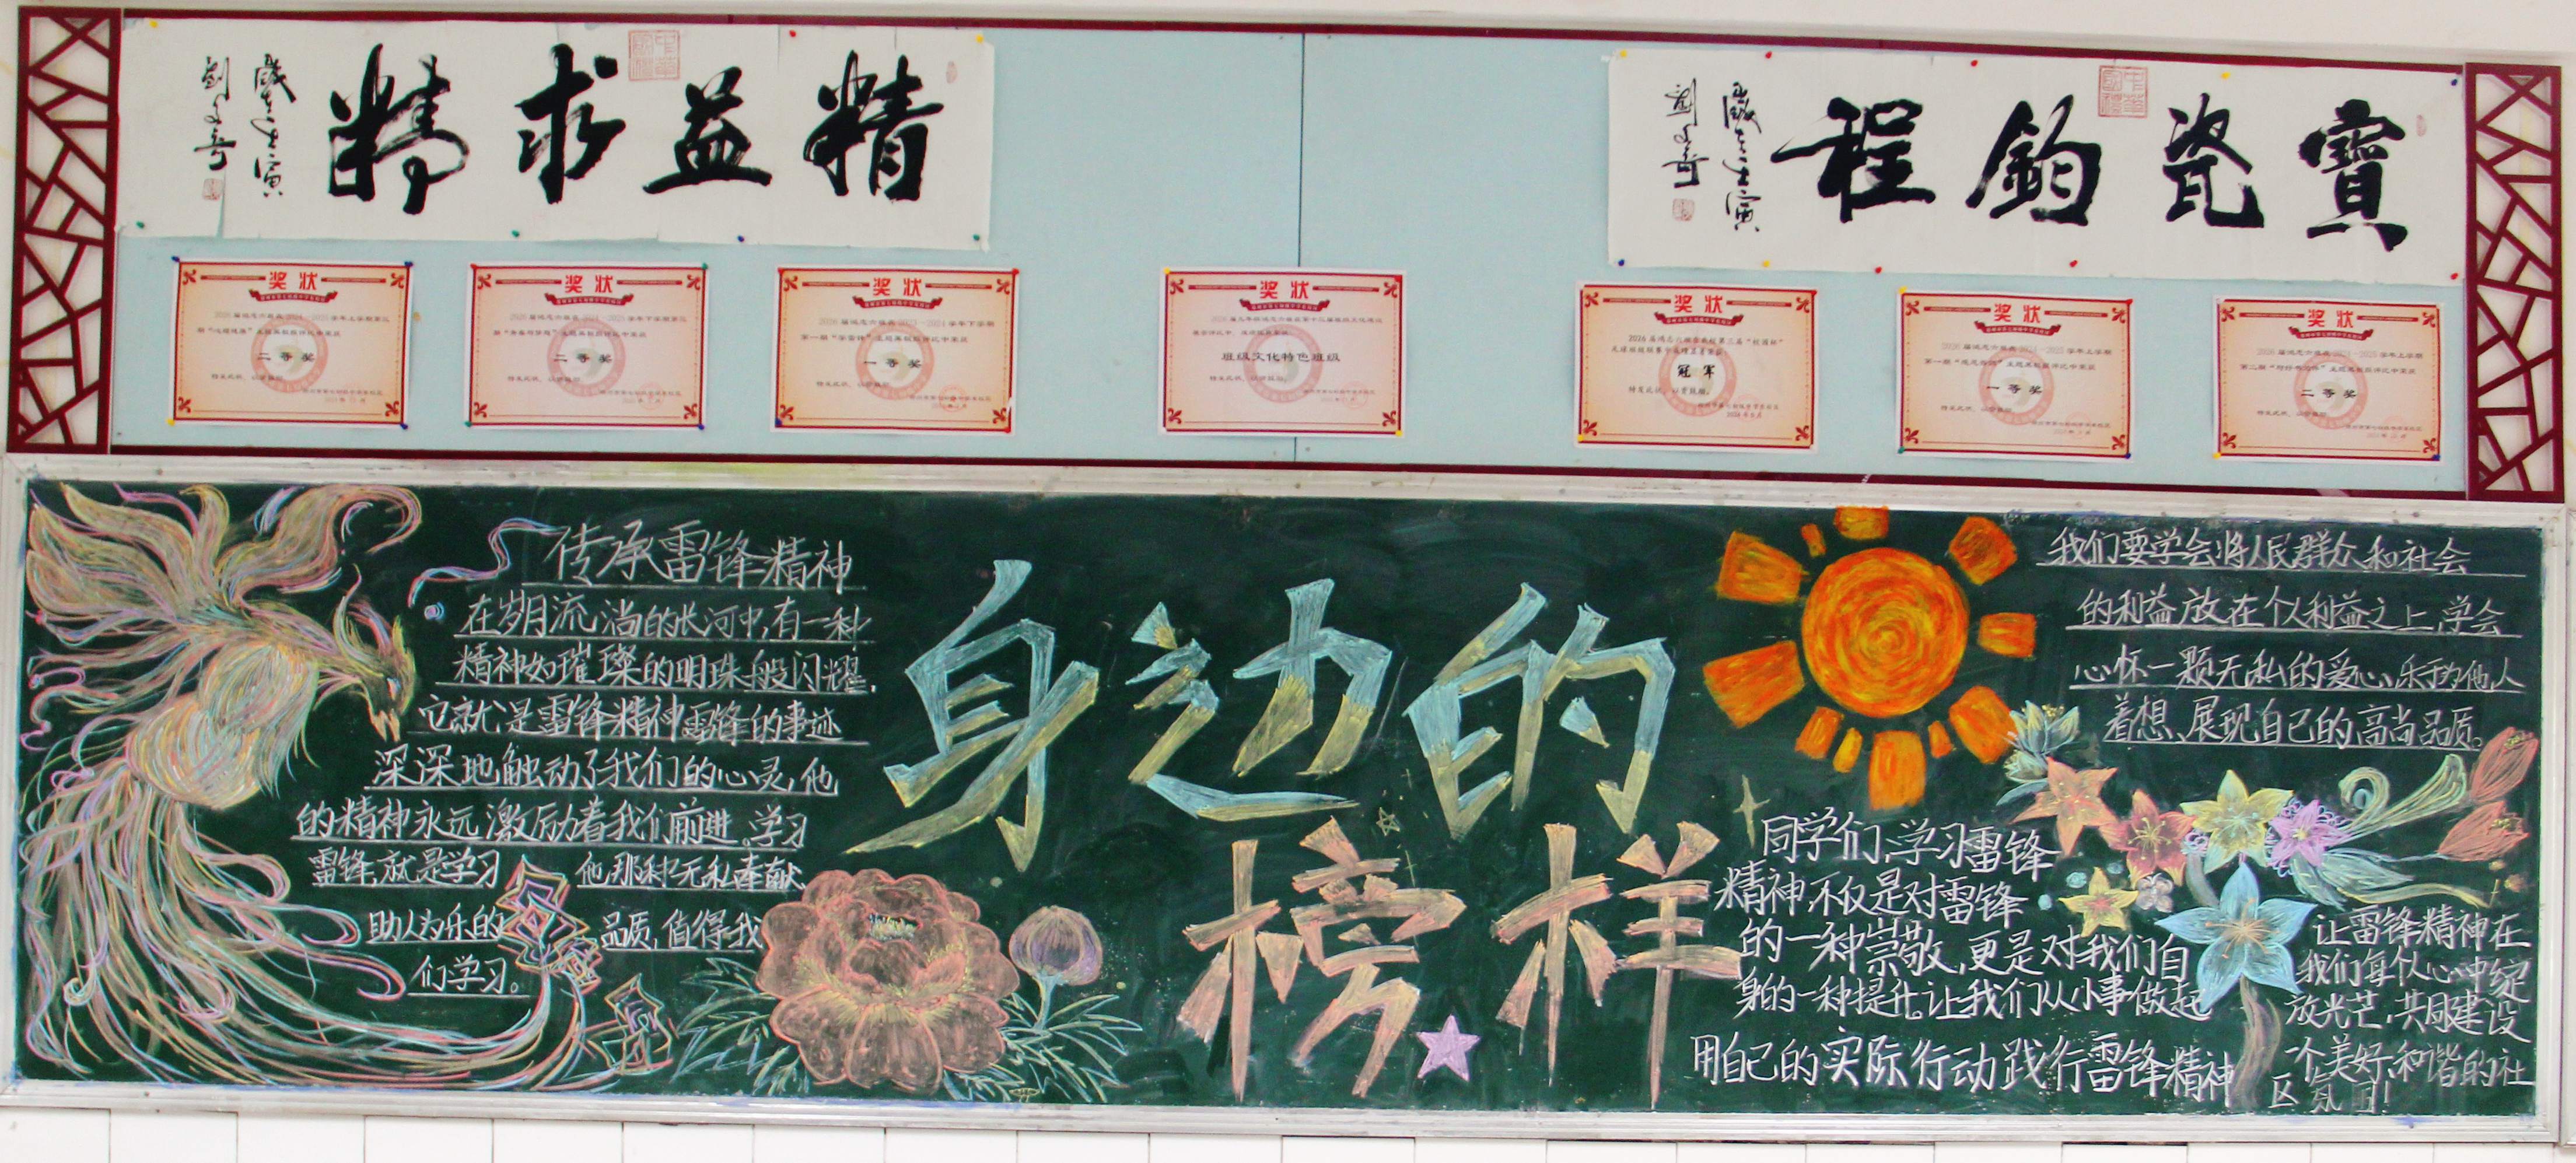 精益求精
歲在壬寅
劉文奇
寶瓷鈞程
歲在壬寅
劉文奇
奖状
二等奖
特发此状，以资鼓励。
奖状
二等奖
特发此状，以资鼓励。
奖状
一等奖
特发此状，以资鼓励。
奖状
班级文化特色班级
特发此状，以资鼓励。
奖状
冠军
特发此状，以资鼓励。
奖状
一等奖
特发此状，以资鼓励。
奖状
二等奖
特发此状，以资鼓励。
传承雷锋精神
在岁月流淌的长河中，有一种
精神如璀璨的明珠般闪耀，
它就是雷锋精神，雷锋的事迹
深深地触动了我们的心灵，他
的精神永远激励着我们前进。学习
雷锋，就是学习 他那种无私奉献
助人为乐的 品质，值得我
们学习。
身边的
榜样
我们要学会将人民群众和社会
的利益放在个人利益之上，学会
心怀一颗无私的爱心、乐于为他人
着想、展现自己的高尚品质。
同学们，学习雷锋
精神不仅是对雷锋
的一种崇敬，更是对我们自
身的一种提升。让我们从小事做起
用自己的实际行动践行雷锋精神
让雷锋精神在
我们每个人心中绽
放光芒，共同建设
一个美好、和谐的社
区氛围！